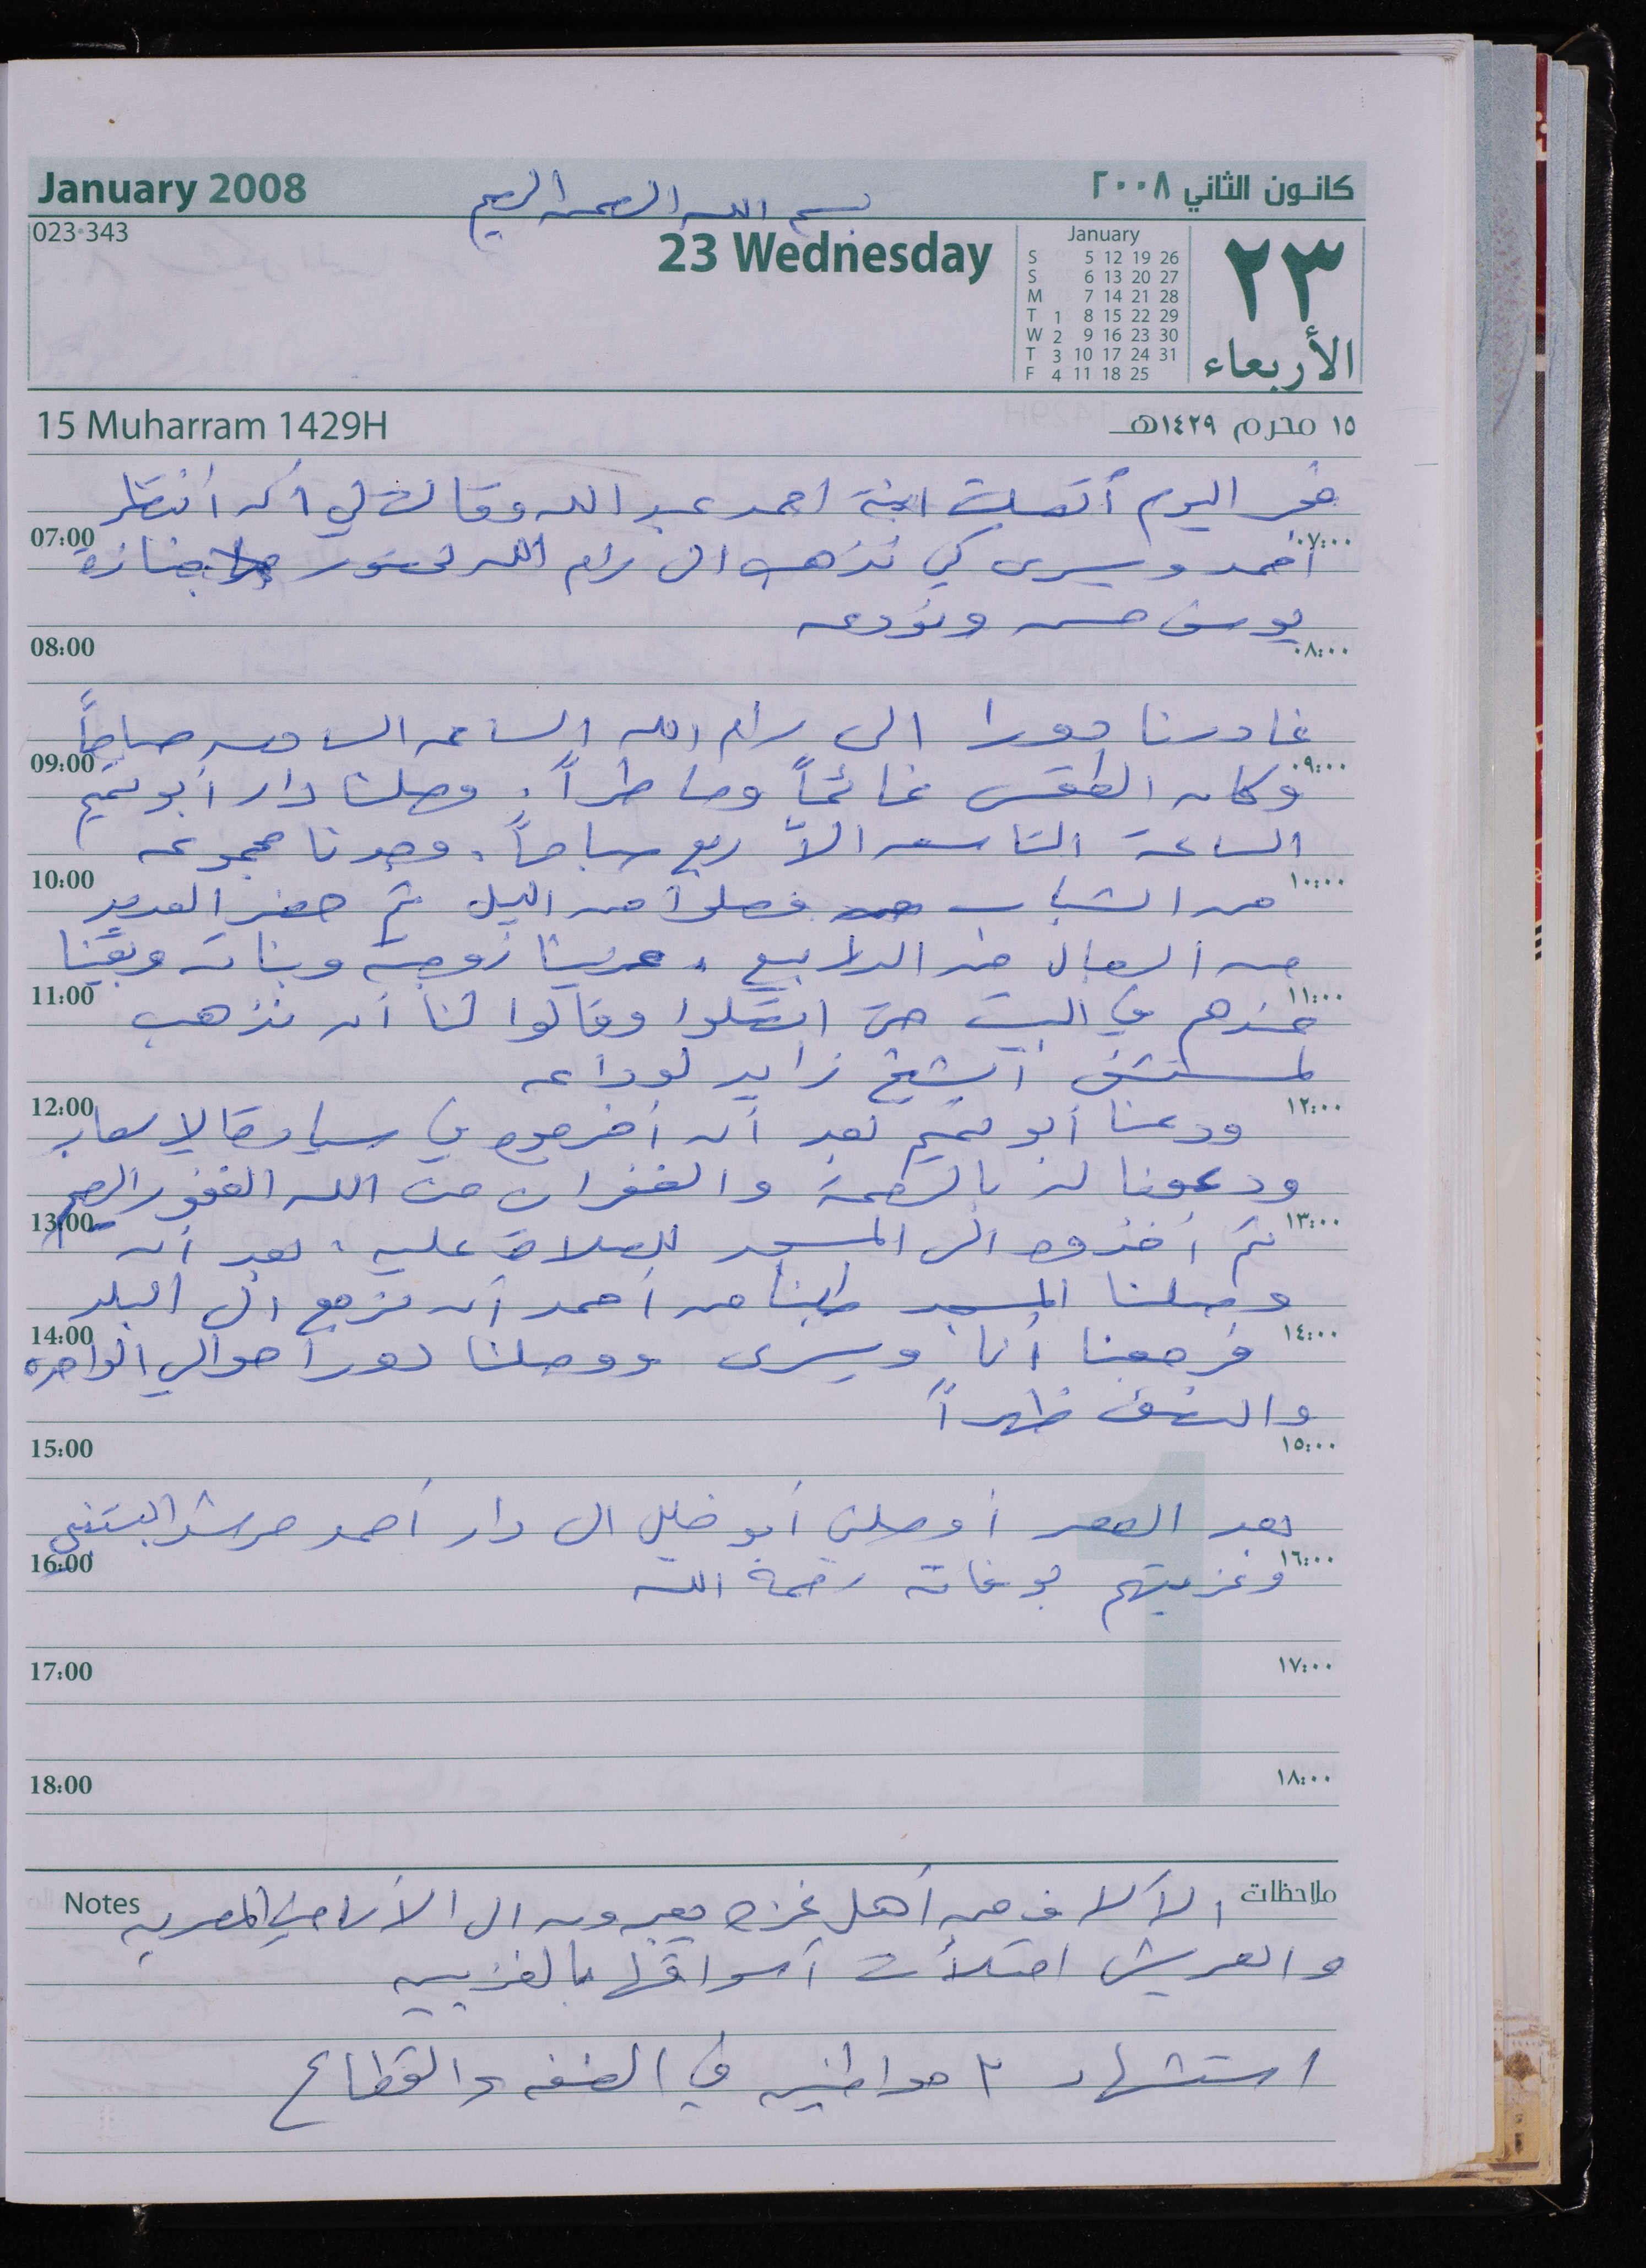 January 2008
بسم الله الرحمن الرحيم
كانون الثاني ٢٠٠٨
023-343
23 Wednesday
January
S 5 12 19 26
S 6 13 20 27
M 7 14 21 28
T 1 8 15 22 29
W 2 9 16 23 30
T 3 10 17 24 31
F 4 11 18 25
٢٣
الأربعاء
15 Muharram 1429H
١٥ محرم ١٤٢٩هـ
فجر اليوم أتصلت ابنة احمد عبد الله وقالت لي أن أنتظر
07:00 ٠٧:٠٠
أحمد ويسرى كي نذهب الى رام الله لحضور جنازة
يوسف حسن ونودعه
08:00 ٠٨:٠٠
غادرنا دورا الى رام الله الساعه السادسه صباحاً
09:00 ٠٩:٠٠
وكان الطقس غائماً وماطراً. وصلنا دار أبو تميم
الساعة التاسعه الاّ ربع صباحاً. وجدنا مجموعه
10:00 ١٠:٠٠
من الشباب وصلوا من الليل ثم حضر العديد
من الرجال عزينا زوجته وبناته وبقينا
11:00 ١١:٠٠
عندهم في البيت حتى اتصلوا وقالوا لنا أن نذهب
لمستشفى الشيخ زايد لوداعه
12:00 ١٢:٠٠
ودعنا أبو تميم بعد أن أخرجوه في سيارة الاسعاف
ودعونا له بالرحمة والغفران من الله الغفور الرحيم
13:00 ١٣:٠٠
ثم أخذوه الى المسجد للصلاة عليه، بعد أن
وصلنا المسجد طلبنا من أحمد أن نرجع الى البلد
14:00 ١٤:٠٠
فرجعنا أنا ويسرى ووصلنا دورا حوالي الواحده
والنصف ظهراً
15:00 ١٥:٠٠
بعد العصر أوصلني أبو خليل الى دار أحمد مرشد
16:00 ١٦:٠٠
وعزيتهم بوفاته رحمه الله
17:00 ١٧:٠٠
18:00 ١٨:٠٠
1
Notes ملاحظات
الآلاف من أهل غزه يعبرون الى الأراضي المصريه
والعريش امتلأت أسواقها بالغزيين
استشهاد ٢ مواطنين في الضفه والقطاع